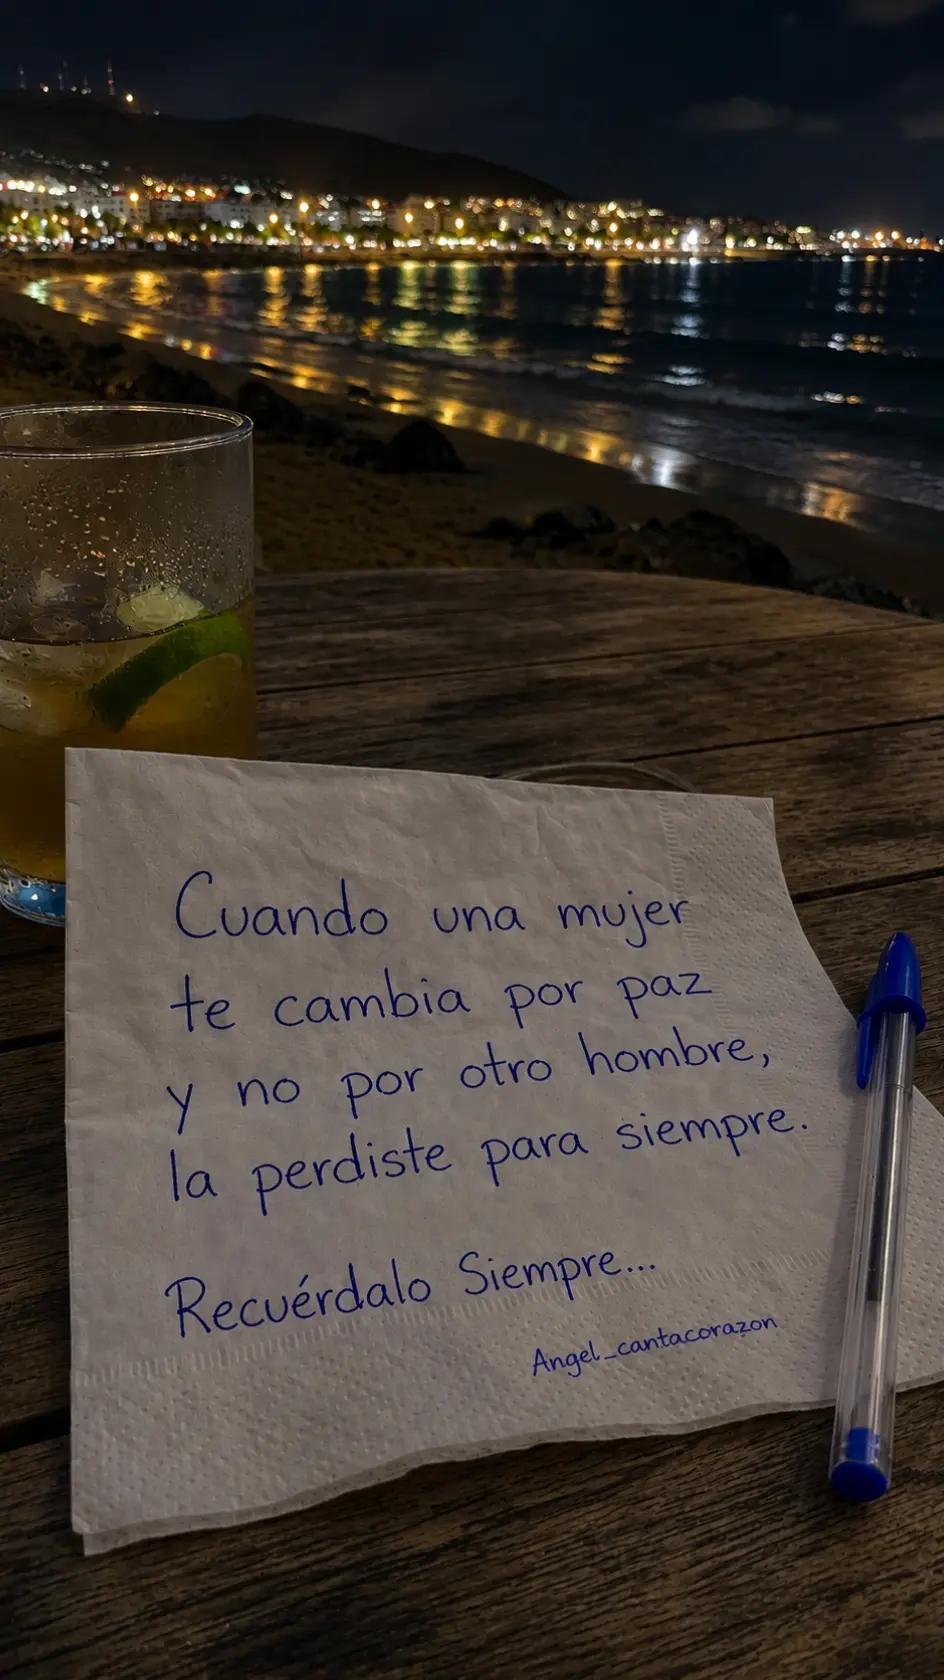 Cuando una mujer
te cambia por paz
y no por otro hombre,
la perdiste para siempre.
Recuérdalo Siempre...
Angel_cantacorazon